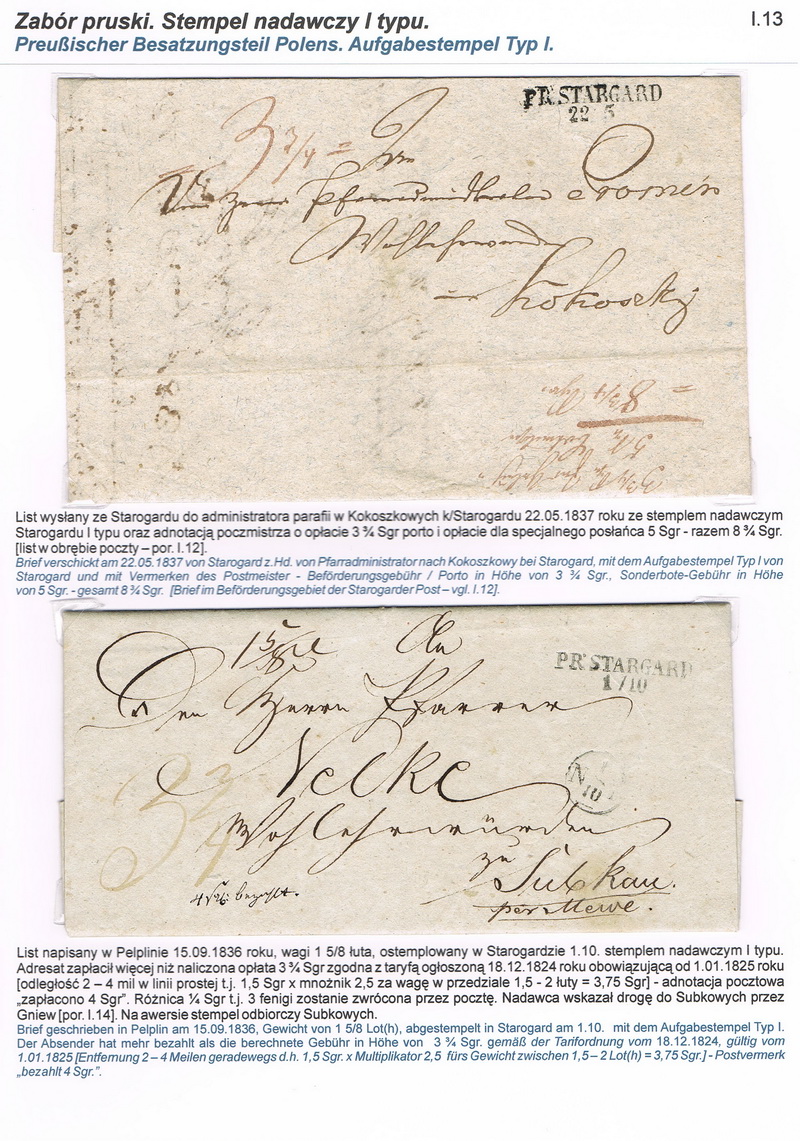 Zabór pruski. Stempel nadawczy I typu.
I.13
Preußischer Besatzungsteil Polens. Aufgabestempel Typ I.
PR. STARGARD
22 5
3 3/4 =
An
Pfarradministrator
Wohlehrwürden
in Kokoschky
= 8 3/4 Sgr.
List wysłany ze Starogardu do administratora parafii w Kokoszkowych k/Starogardu 22.05.1837 roku ze stemplem nadawczym
Starogardu I typu oraz adnotacją poczmistrza o opłacie 3 ¾ Sgr porto i opłacie dla specjalnego posłańca 5 Sgr - razem 8 ¾ Sgr.
[list w obrębie poczty – por. I.12].
Brief verschickt am 22.05.1837 von Starogard z.Hd. von Pfarradministrator nach Kokoszkowy bei Starogard, mit dem Aufgabestempel Typ I von
Starogard und mit Vermerken des Postmeister - Beförderungsgebühr / Porto in Höhe von 3 ¾ Sgr., Sonderbote-Gebühr in Höhe
von 5 Sgr. - gesamt 8 ¾ Sgr. [Brief im Beförderungsgebiet der Starogarder Post – vgl. I.12].
1 5/8
An
PR. STARGARD
1/10
Den Herrn Pfarrer
Velke
N
10
3 3/4
Wohlehrwürden
zu
Subkau.
4 bezahlt.
per Mewe.
List napisany w Pelplinie 15.09.1836 roku, wagi 1 5/8 łuta, ostemplowany w Starogardzie 1.10. stemplem nadawczym I typu.
Adresat zapłacił więcej niż naliczona opłata 3 ¾ Sgr zgodna z taryfą ogłoszoną 18.12.1824 roku obowiązującą od 1.01.1825 roku
[odległość 2 – 4 mil w linii prostej t.j. 1,5 Sgr x mnożnik 2,5 za wagę w przedziale 1,5 - 2 łuty = 3,75 Sgr] - adnotacja pocztowa
„zapłacono 4 Sgr". Różnica ¼ Sgr t.j. 3 fenigi zostanie zwrócona przez pocztę. Nadawca wskazał drogę do Subkowych przez
Gniew [por. I.14]. Na awersie stempel odbiorczy Subkowych.
Brief geschrieben in Pelplin am 15.09.1836, Gewicht von 1 5/8 Lot(h), abgestempelt in Starogard am 1.10. mit dem Aufgabestempel Typ I.
Der Absender hat mehr bezahlt als die berechnete Gebühr in Höhe von 3 ¾ Sgr. gemäß der Tarifordnung vom 18.12.1824, gültig vom
1.01.1825 [Entfernung 2 – 4 Meilen geradewegs d.h. 1,5 Sgr. x Multiplikator 2,5 fürs Gewicht zwischen 1,5 – 2 Lot(h) = 3,75 Sgr.] - Postvermerk
„bezahlt 4 Sgr.".